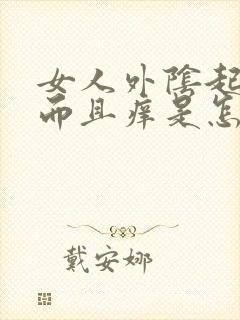 女人外陰起
而且痒是怎
戴安娜